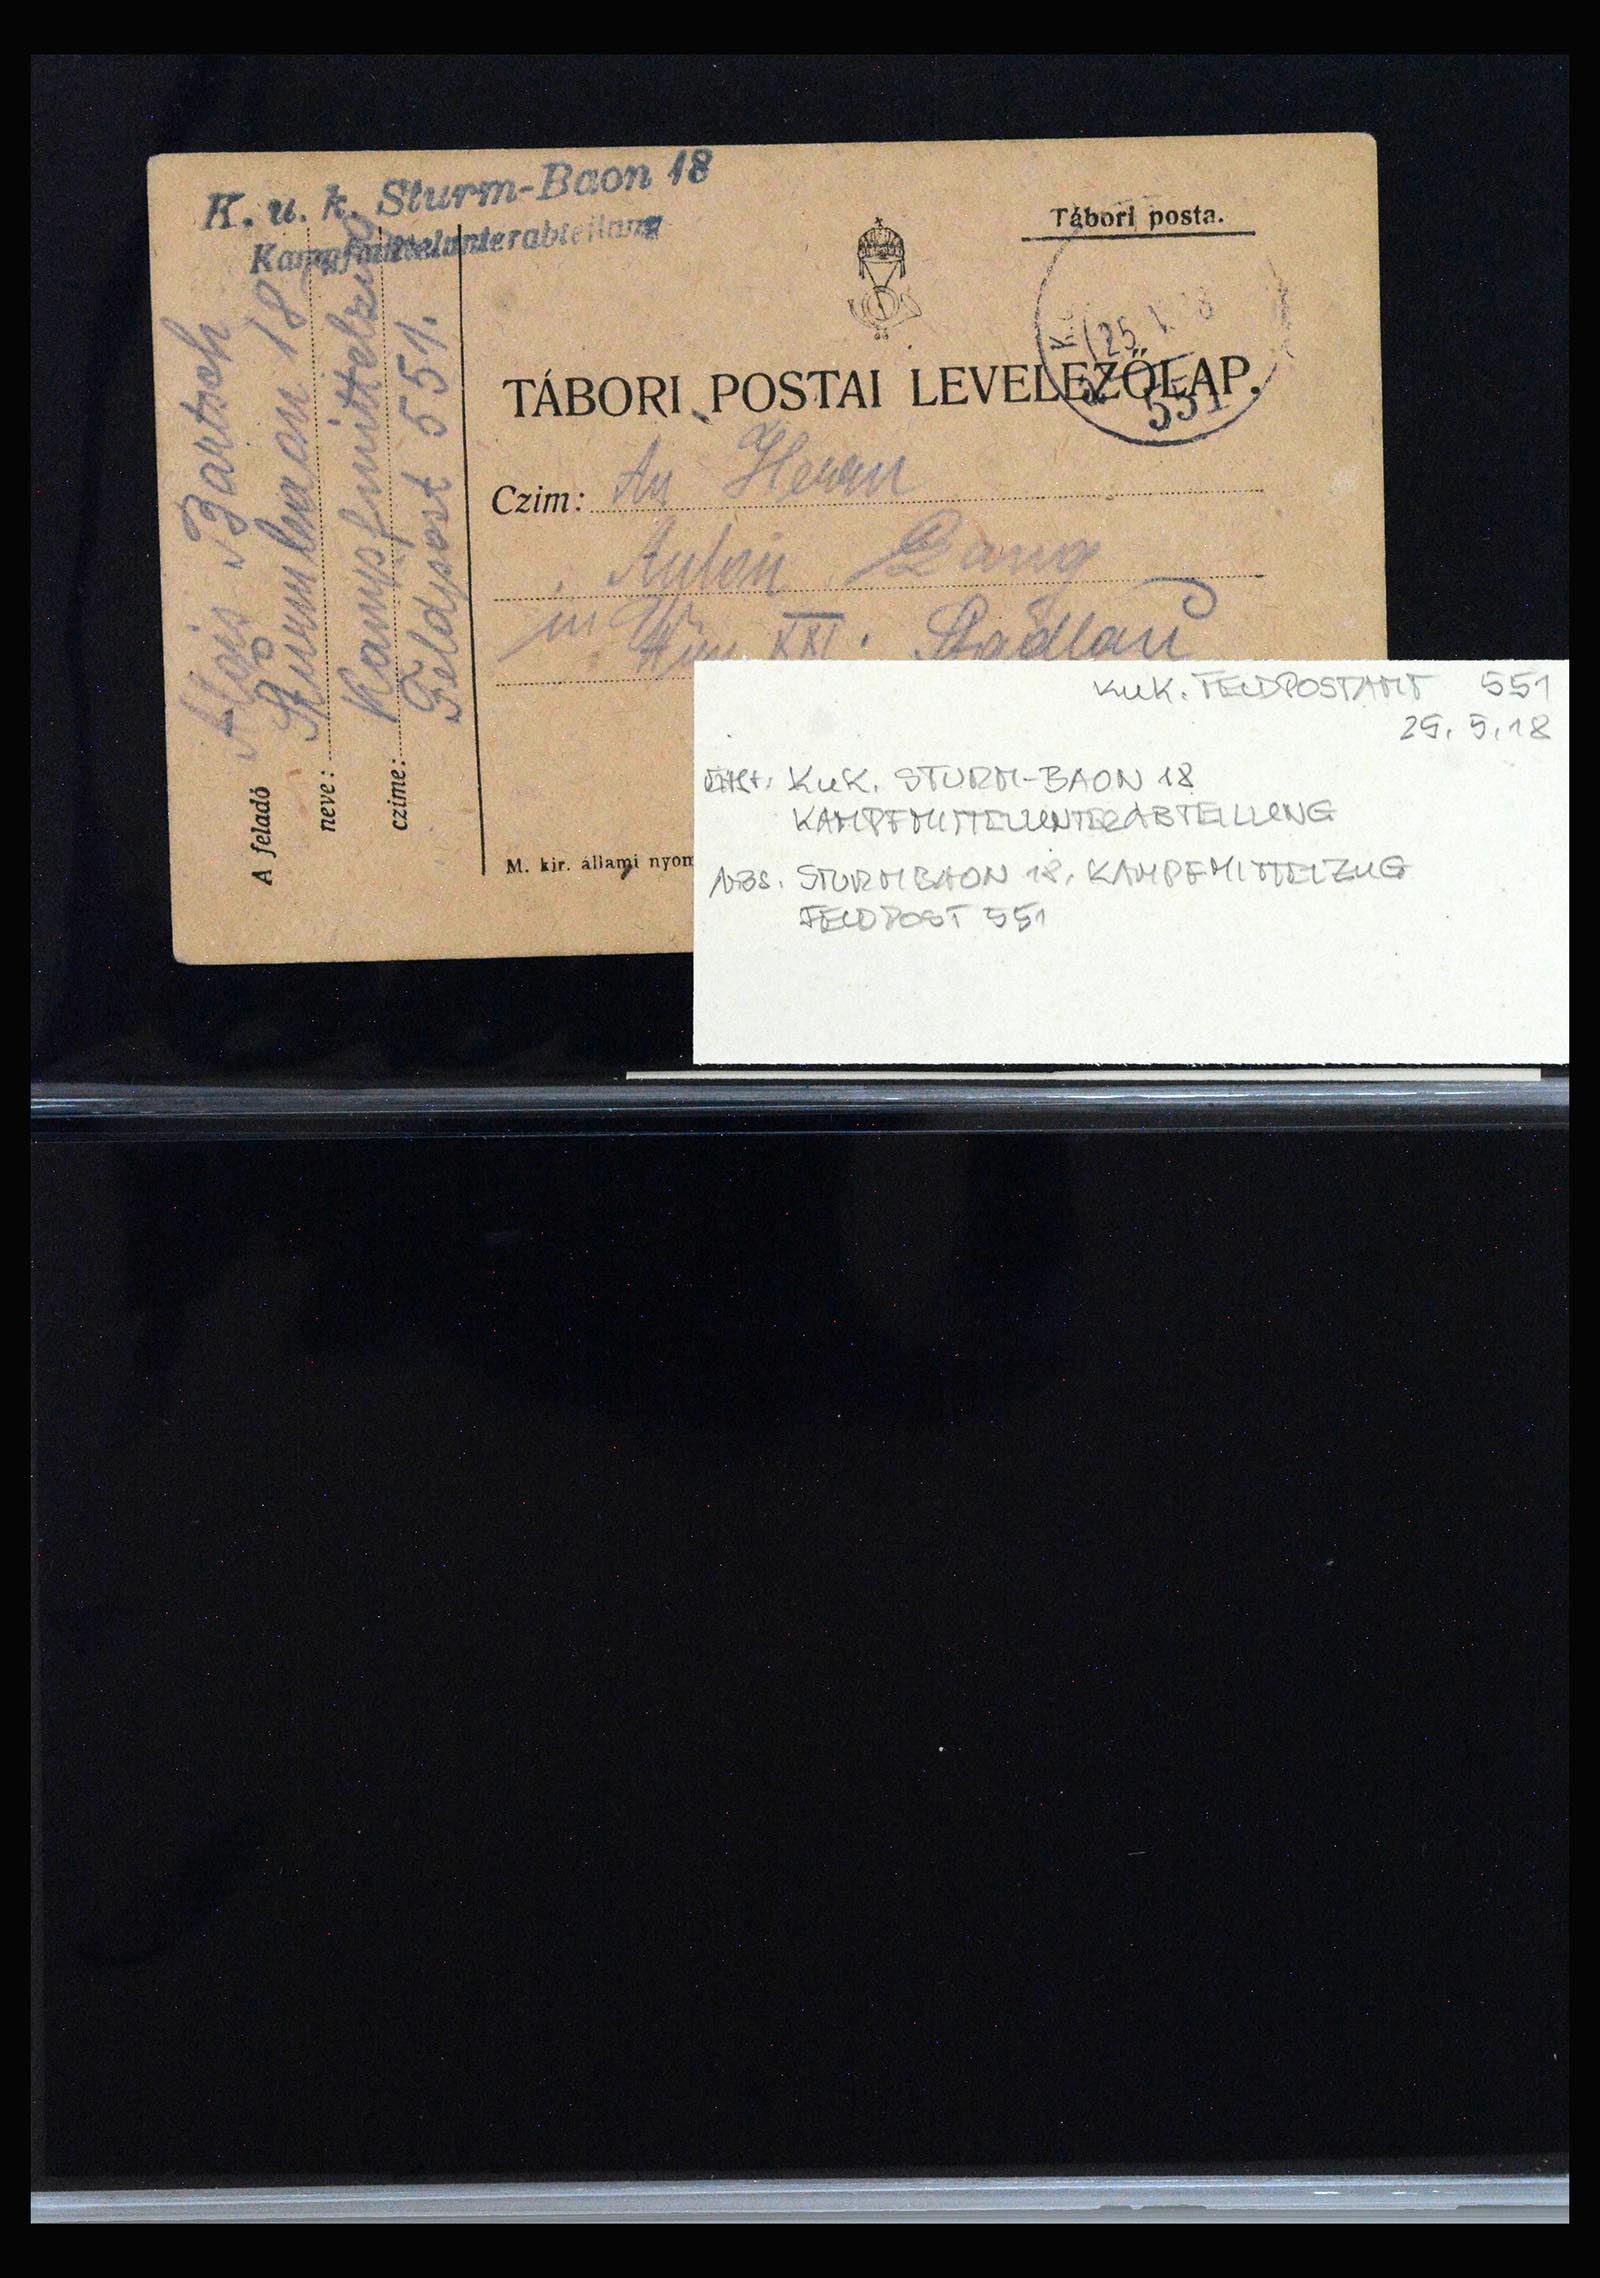 K. u. k. Sturm-Baon 18
Kampfmittelunterabteilung
Tábori posta.
25 V 18
551
TÁBORI POSTAI LEVELEZŐLAP.
Czim: An Herrn
Anton
in Wien XXI. Stadlau
A feladó
neve:
czime:
Alois Bartsch
Sturmbaon 18
Kampfmittelzug
Feldpost 551.
M. kir. állami nyom
KuK. FELDPOSTAMT 551
25.5.18
KuK. STURM-BAON 18
KAMPFMITTELUNTERABTEILUNG
ABS. STURMBAON 18, KAMPFMITTELZUG
FELDPOST 551